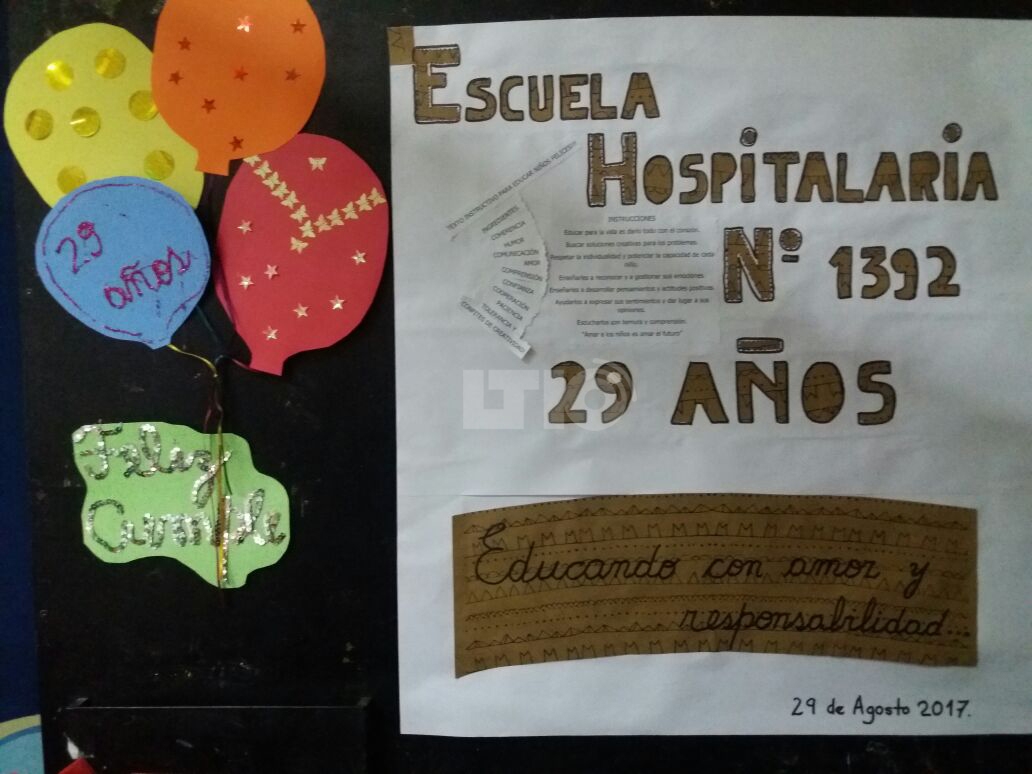 29
años
Feliz
Cumple
ESCUELA
HOSPITALARIA
Nº 1392
TEXTO INSTRUCTIVO PARA EDUCAR NIÑOS FELICES!!!
INGREDIENTES
COHERENCIA
HUMOR
COMUNICACIÓN
AMOR
COMPRENSIÓN
CONFIANZA
COOPERACIÓN
PACIENCIA
TOLERANCIA Y
CONFITES DE CREATIVIDAD
INSTRUCCIONES
Educar para la vida es darlo todo con el corazón.
Buscar soluciones creativas para los problemas.
Respetar la individualidad y potenciar la capacidad de cada
niño.
Enseñarles a reconocer y a gestionar sus emociones.
Enseñarles a desarrollar pensamientos y actitudes positivas.
Ayudarlos a expresar sus sentimientos y dar lugar a sus
opiniones.
Escucharlos con ternura y comprensión.
"Amar a los niños es amar el futuro"
29 AÑOS
Educando con amor y
responsabilidad...
29 de Agosto 2017.